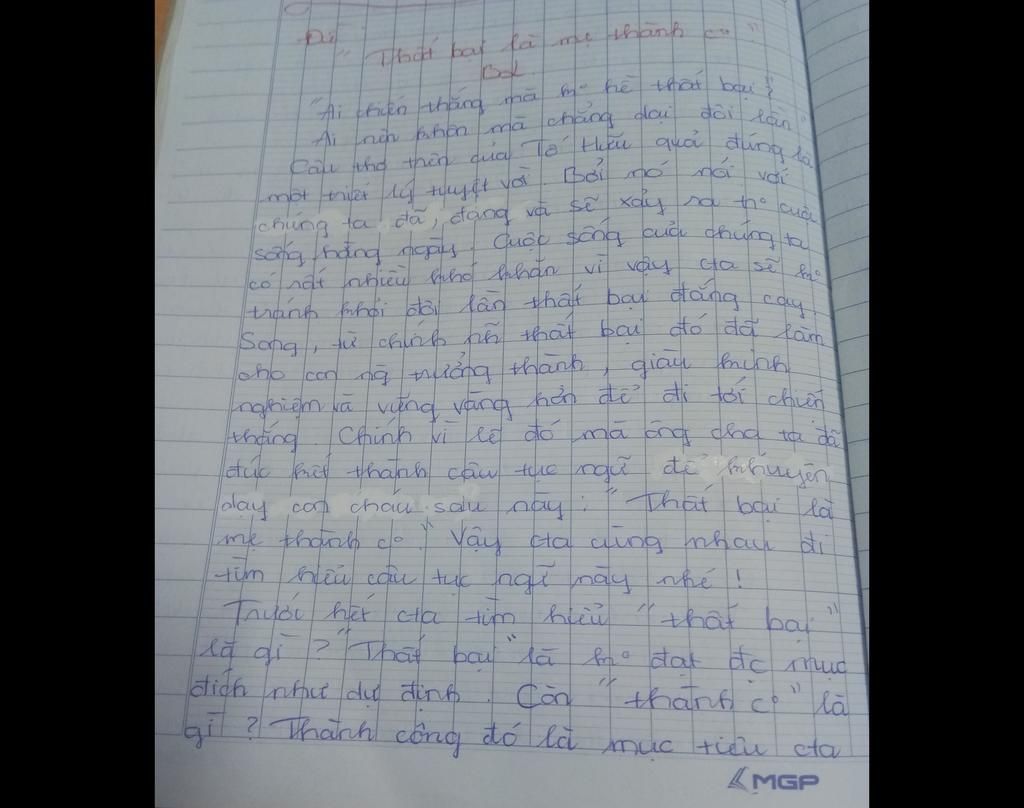 Đề
"Thất bại là mẹ thành cº"
Bài
"Ai chiến thắng mà kº hề thất bại?
Ai nên khôn mà chẳng dại đôi lần"
Câu thơ trên của Tố Hữu quả đúng là
một triết lý tuyệt vời. Bởi nó nói với
chúng ta đã, đang và sẽ xảy ra trº cuộc
sống hằng ngày. Cuộc sống của chúng ta
có rất nhiều khó khăn vì vậy cta sẽ kº
tránh khỏi đôi lần thất bại đắng cay.
Song, từ chính nh~ thất bại đó đã làm
cho con ng trưởng thành, giàu kinh
nghiệm và vững vàng hơn để đi tới chiến
thắng. Chính vì lẽ đó mà ông cha ta đã
đúc kết thành câu tục ngữ để khuyên
dạy con cháu sau này: "Thất bại là
mẹ thành cº" Vậy cta cùng nhau đi
tìm hiểu câu tục ngữ này nhé!
Trước hết cta tìm hiểu "thất bại"
là gì? "Thất bại" là kº đạt đc mục
đích như dự định. Còn "thành cº" là
gì? Thành công đó là mục tiêu cta
MGP